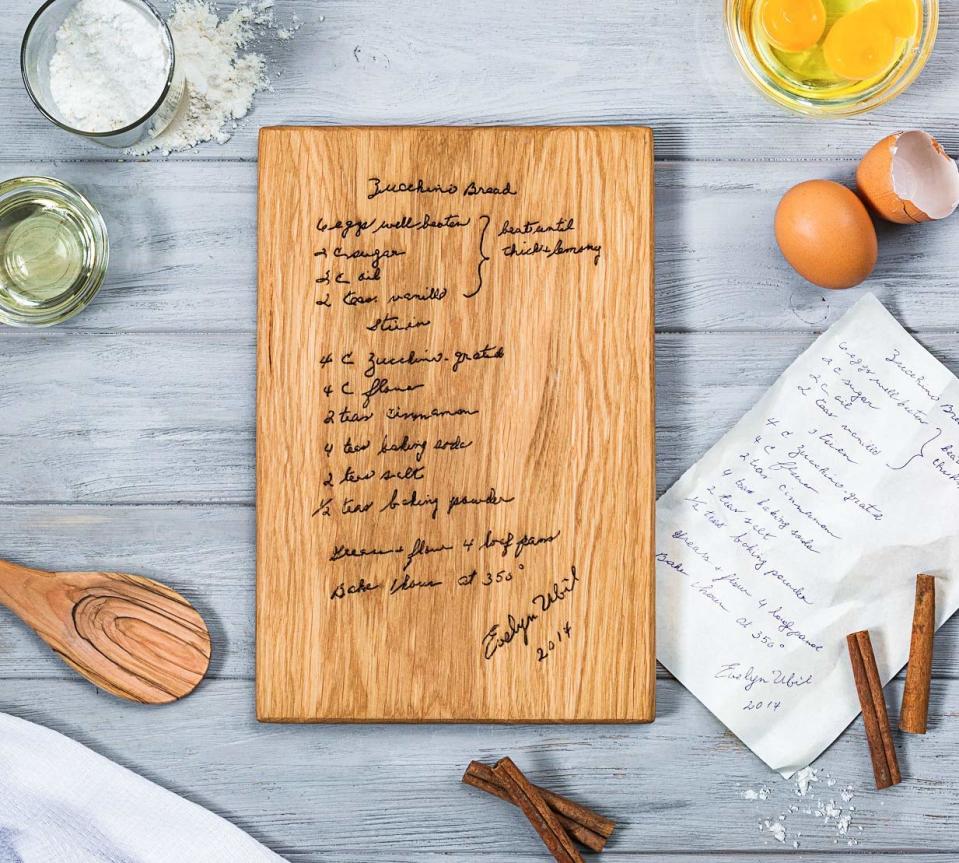 Zucchini Bread
6 eggs well beaten beat until
2 C sugar thick + lemony
2 C oil
2 teas vanilla
Stir in
4 C Zucchini-grated
4 C flour
2 teas cinnamon
4 teas baking soda
2 teas salt
1/2 teas baking powder
Grease + flour 4 loaf pans
Bake 1 hour at 350°
Evelyn Ubil
2014
Zucchini
6 eggs well beaten
2 C sugar
2 C oil
2 teas vanilla
Stir in
4 C Zucchini-grated
4 C flour
2 teas cinnamon
4 teas baking soda
2 teas salt
1/2 teas baking powder
Grease + flour 4 loaf pans
Bake 1 hour at 350°
Evelyn Ubil
2014